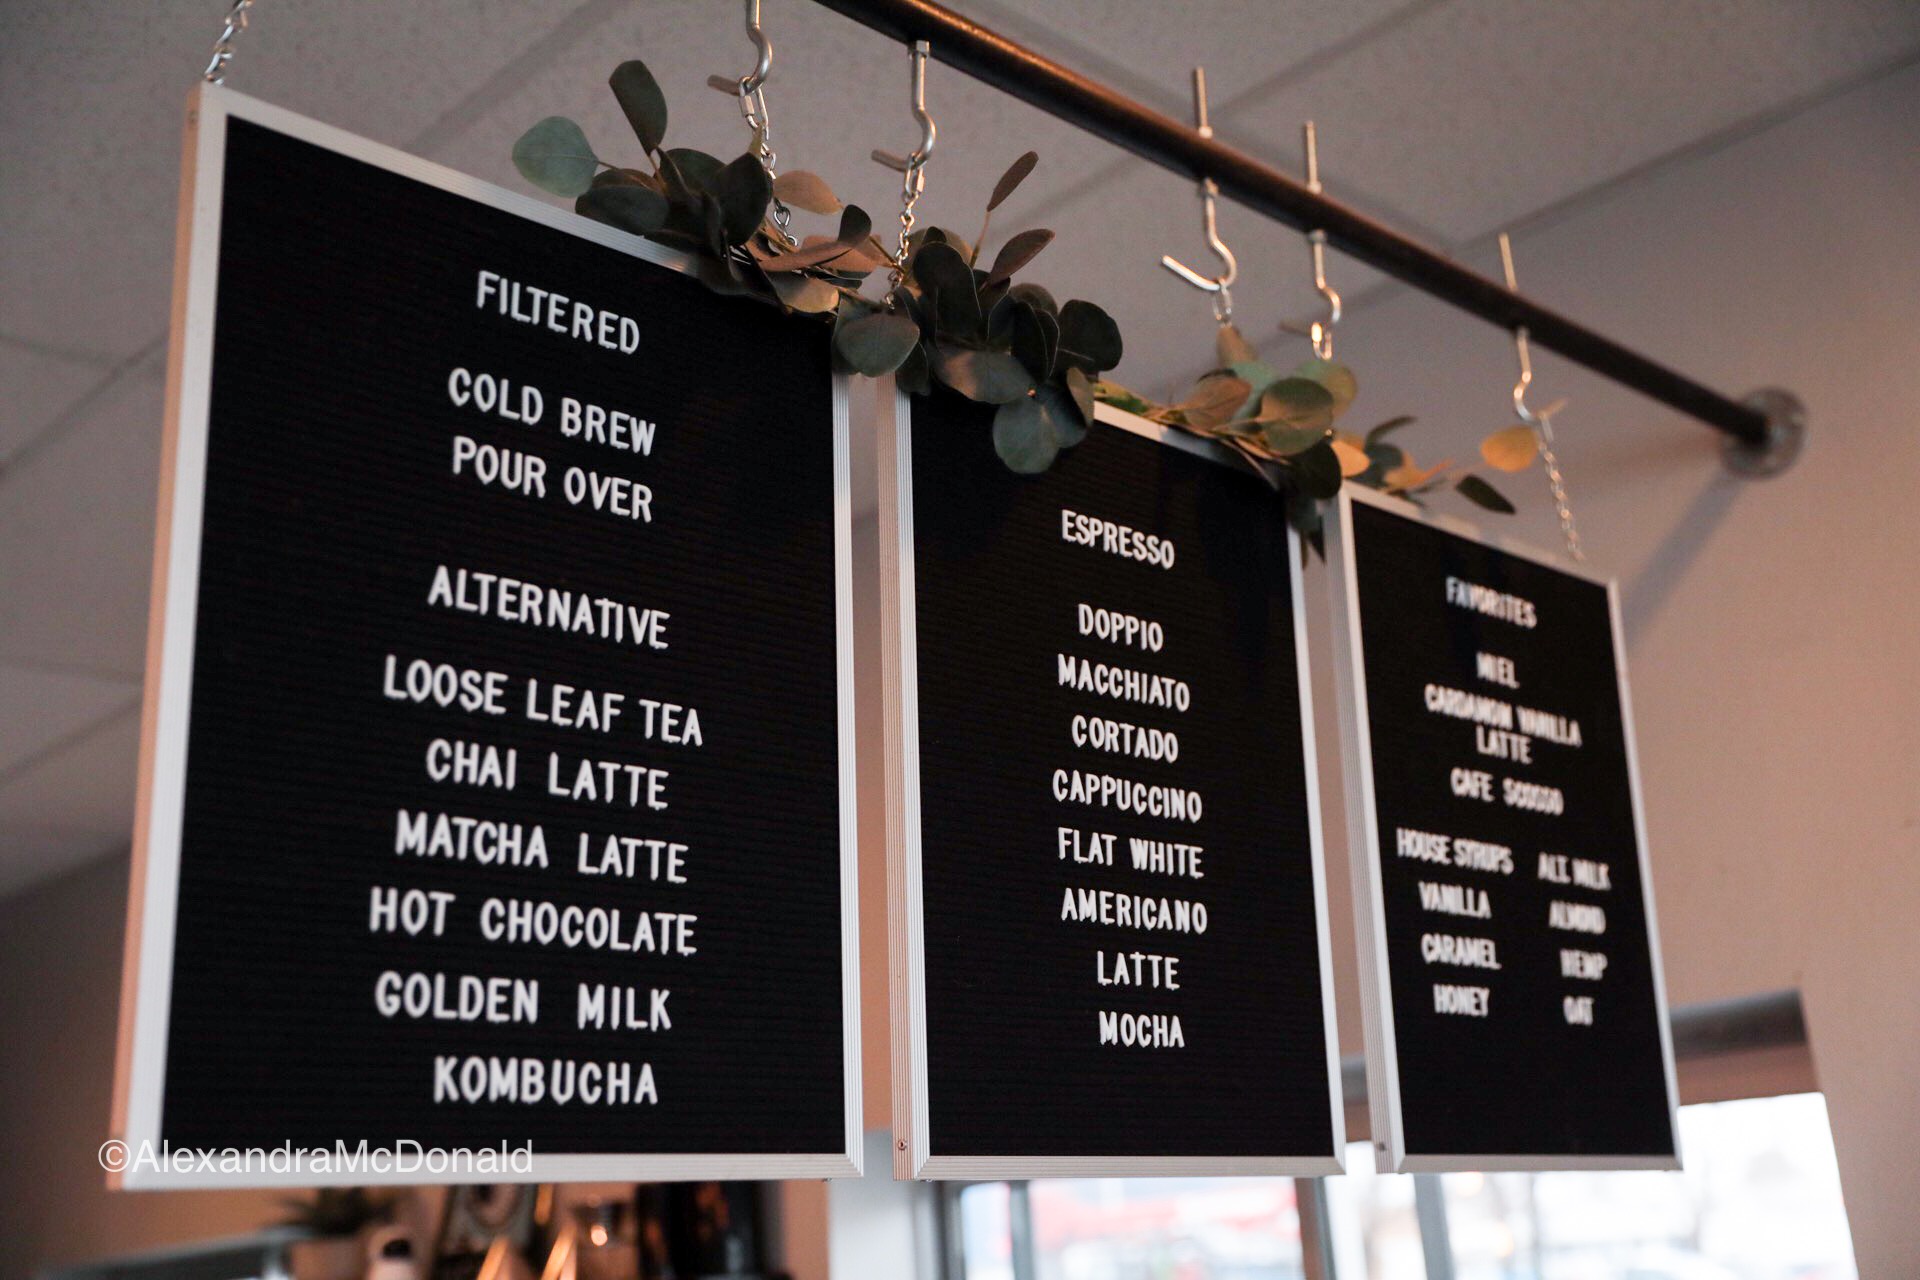 FILTERED
COLD BREW
POUR OVER
ALTERNATIVE
LOOSE LEAF TEA
CHAI LATTE
MATCHA LATTE
HOT CHOCOLATE
GOLDEN MILK
KOMBUCHA
ESPRESSO
DOPPIO
MACCHIATO
CORTADO
CAPPUCCINO
FLAT WHITE
AMERICANO
LATTE
MOCHA
FAVORITES
MIEL
CARDAMON VANILLA
LATTE
CAFE SCOSSO
HOUSE SYRUPS
VANILLA
CARAMEL
HONEY
ALT. MILK
ALMOND
HEMP
OAT
©AlexandraMcDonald